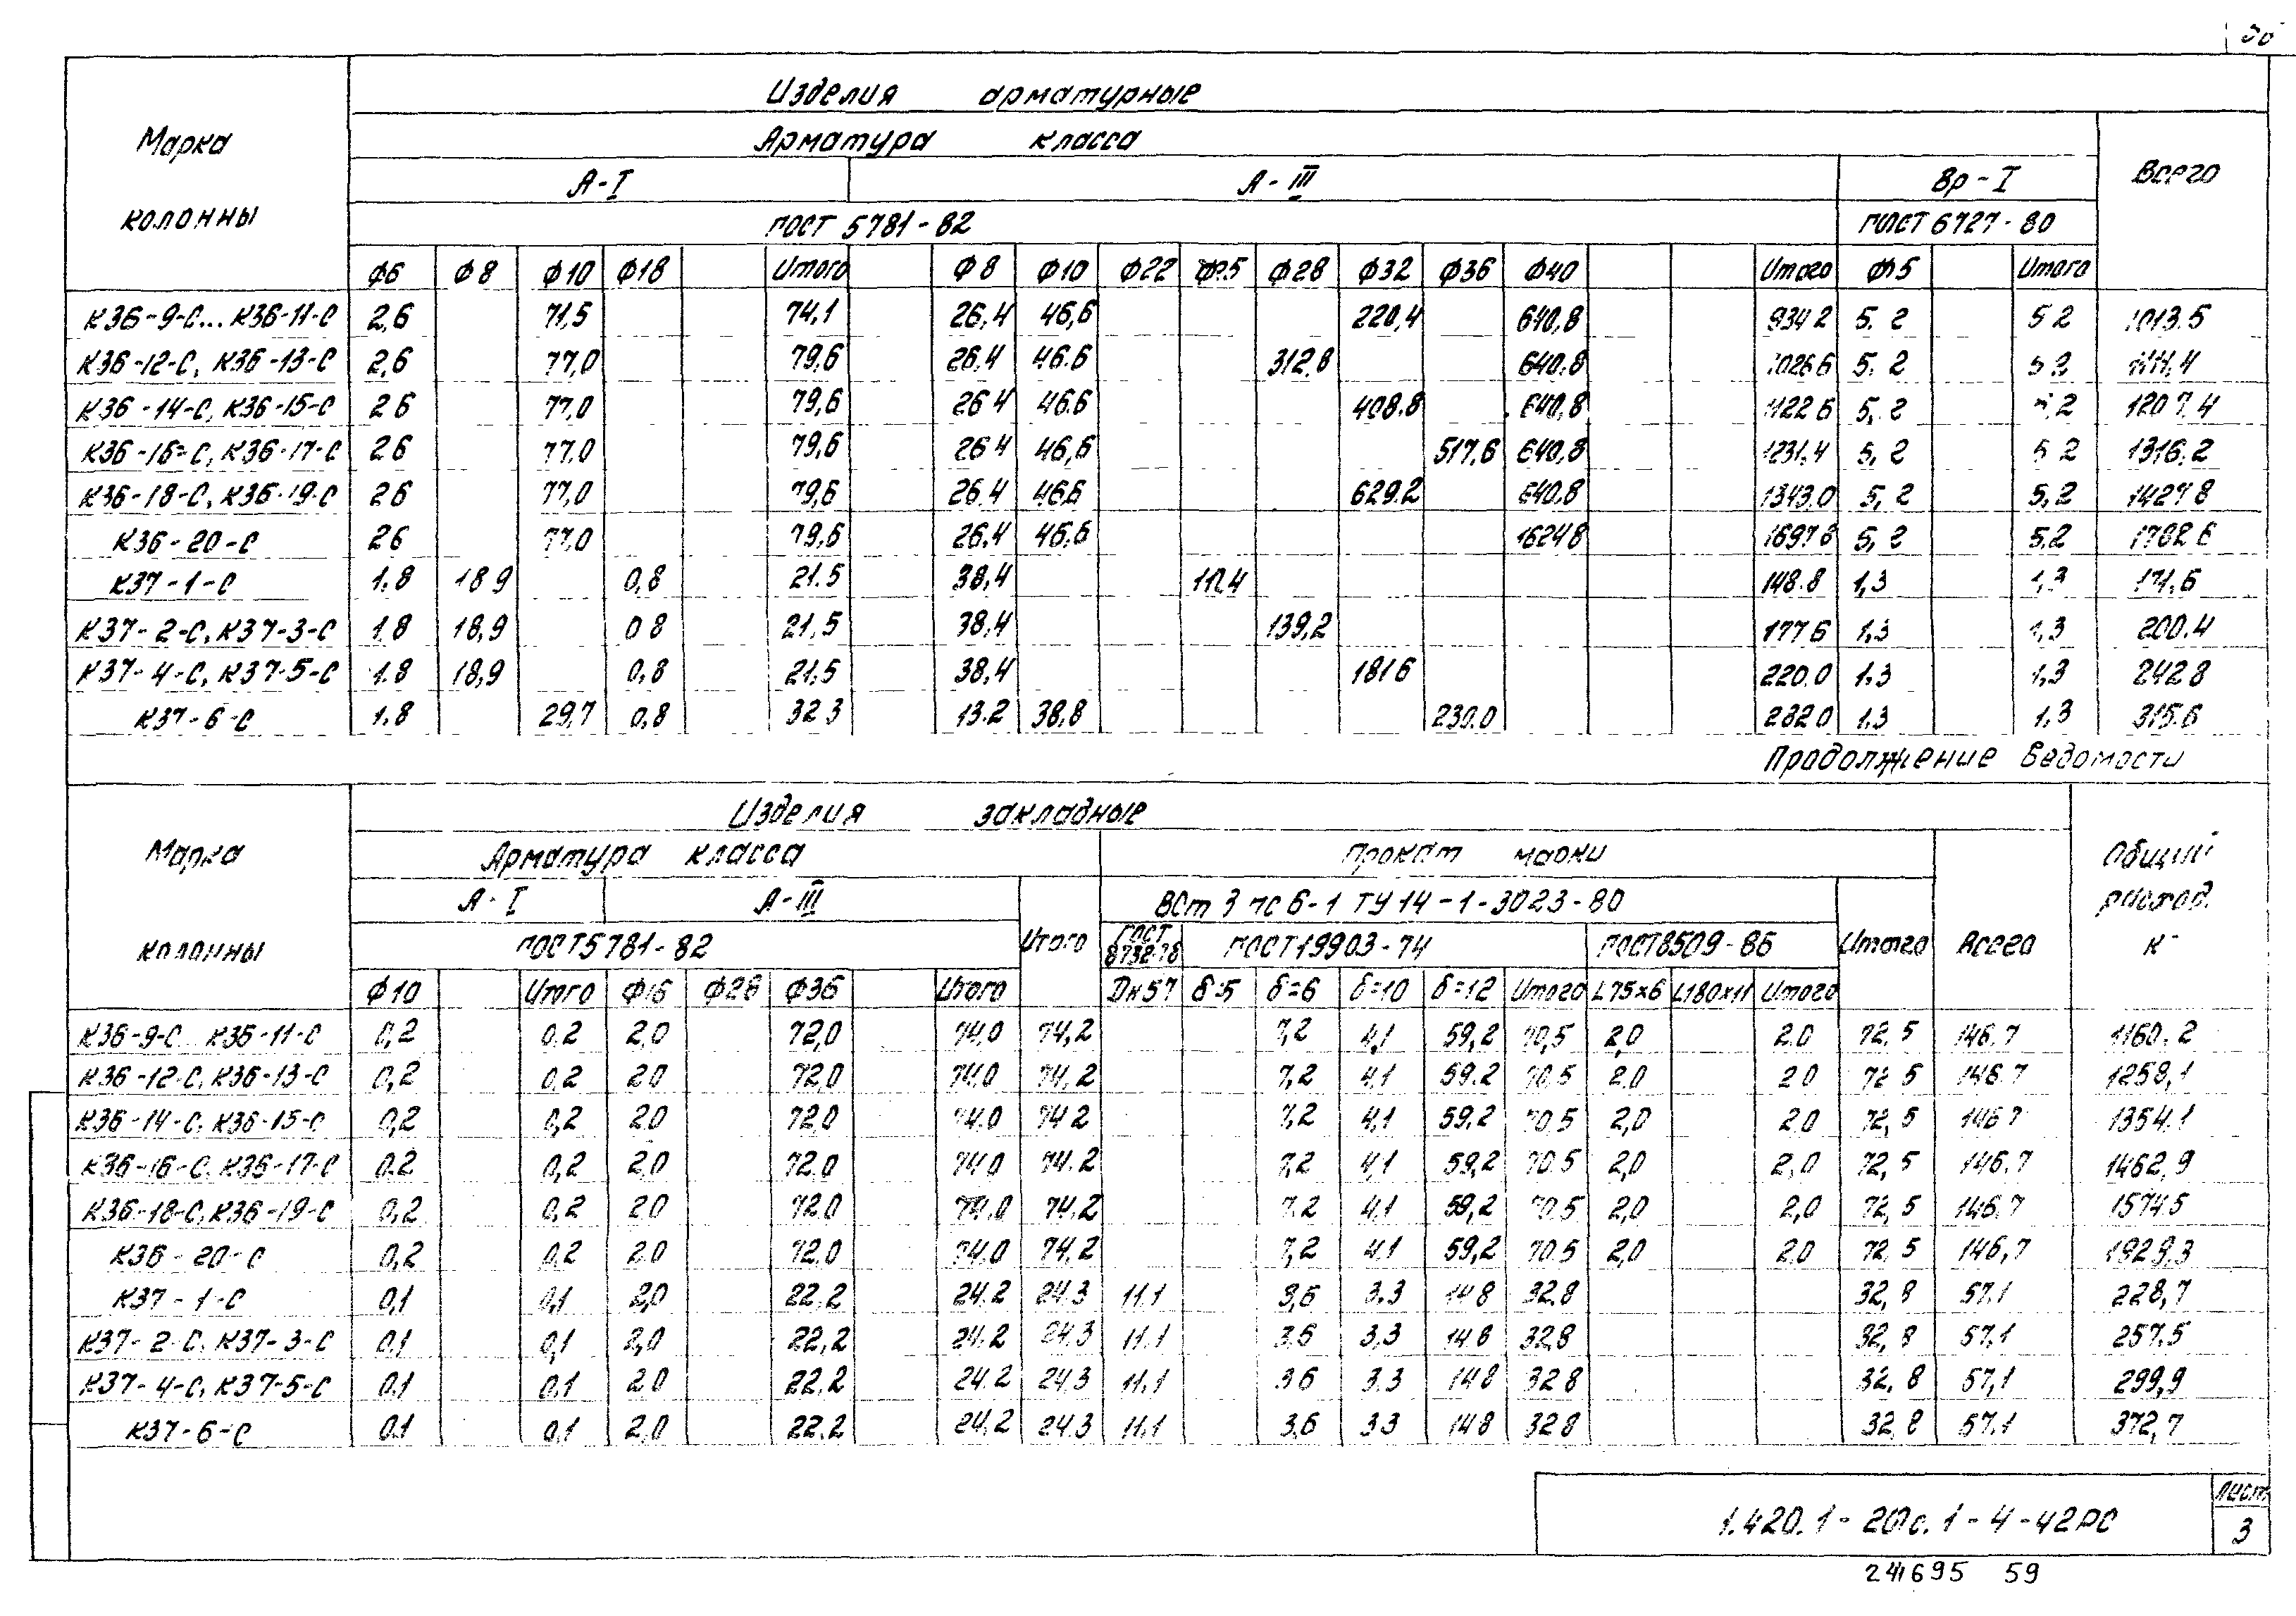 Марка колонны
Изделия арматурные
Арматура класса
Всего
А-I А-III Вр-I
ГОСТ 5781-82 ГОСТ 6727-80
Ф6 Ф8 Ф10 Ф18 Итого Ф8 Ф10 Ф22 Ф25 Ф28 Ф32 Ф36 Ф40 Итого Ф5 Итого
К36-9-С... К36-11-С 2,6 71,5 74,1 26,4 46,6 220,4 640,8 934 2 5. 2 5 2 1013.5
К36-12-С, К36-13-С 2,6 77,0 79,6 26,4 46.6 312,8 640,8 1026 6 5. 2 5 2 1111,4
К36-14-С, К36-15-С 2 6 77,0 79,6 26 4 46.6 408.8 640,8 1122 6 5, 2 5,2 1207.4
К36-16-С, К36-17-С 2 6 77,0 79,6 26 4 46,6 517,6 640,8 1231,4 5, 2 5 2 1316.2
К36-18-С, К36-19-С 2 6 77,0 79,6 26.4 46,6 629.2 640,8 1343,0 5, 2 5,2 1427 8
К36-20-С 2 6 77,0 79,6 26,4 46,6 1624 8 1697 8 5, 2 5,2 1782 6
К37-1-С 1.8 18 9 0,8 21.5 38,4 110,4 148.8 1,3 1,3 171,6
К37-2-С, К37-3-С 1,8 18,9 0 8 21,5 38,4 139,2 177 6 1,3 1,3 200.4
К37-4-С, К37-5-С 1.8 18,9 0,8 21,5 38,4 181 6 220.0 1.3 1,3 242 8
К37-6-С 1.8 29,7 0,8 32 3 13.2 38,8 230.0 282 0 1.3 1,3 315.6
Продолжение ведомости
Марка колонны
Изделия закладные
Арматура класса Прокат марки
Общий расход.
А-I А-III ВСт 3 пс 6-1 ТУ 14-1-3023-80
ГОСТ 5781-82 Итого ГОСТ 8732-78 ГОСТ 19903-74 ГОСТ 8509-86 Итого Всего
Ф10 Итого Ф16 Ф28 Ф36 Итого Дн57 δ=5 δ=6 δ=10 δ=12 Итого L75×6 L180×11 Итого
К36-9-С... К36-11-С 0,2 0.2 2,0 72,0 74,0 74,2 7,2 4,1 59,2 70,5 2,0 2.0 72, 5 146.7 1160. 2
К36-12-С, К36-13-С 0,2 0,2 2 0 72,0 74,0 74,2 7,2 4,1 59.2 70,5 2.0 2 0 72 5 146.7 1258,1
К36-14-С, К36-15-С 0,2 0,2 2 0 72,0 74.0 74 2 7,2 4,1 59,2 70,5 2,0 2.0 72, 5 146 7 1354.1
К36-16-С, К36-17-С 0,2 0,2 2.0 72.0 74,0 74.2 7,2 4,1 59,2 70.5 2,0 2,0 72, 5 146.7 1462,9
К36-18-С, К36-19-С 0,2 0,2 2 0 72.0 74,0 74,2 7.2 4,1 59,2 70,5 2,0 2,0 72, 5 146,7 1574,5
К36-20-С 0,2 0,2 2.0 72,0 74,0 74,2 7,2 4.1 59,2 70.5 2,0 2.0 72, 5 146,7 1929,3
К37-1-С 0,1 0,1 2,0 22,2 24.2 24.3 11.1 3,6 3.3 14 8 32,8 32, 8 57.1 228,7
К37-2-С, К37-3-С 0,1 0,1 2,0 22,2 24.2 24.3 11.1 3.6 3,3 14.8 32,8 32, 8 57,1 257,5
К37-4-С, К37-5-С 0.1 0,1 2.0 22.2 24.2 24.3 11.1 3 6 3.3 14 8 32 8 32, 8 57,1 299,9
К37-6-С 0.1 0,1 2,0 22.2 24,2 24.3 11.1 3,6 3 3 14 8 32 8 32, 8 57.1 372,7
1.420.1-20с.1-4-42РС
Лист
3
24695 59